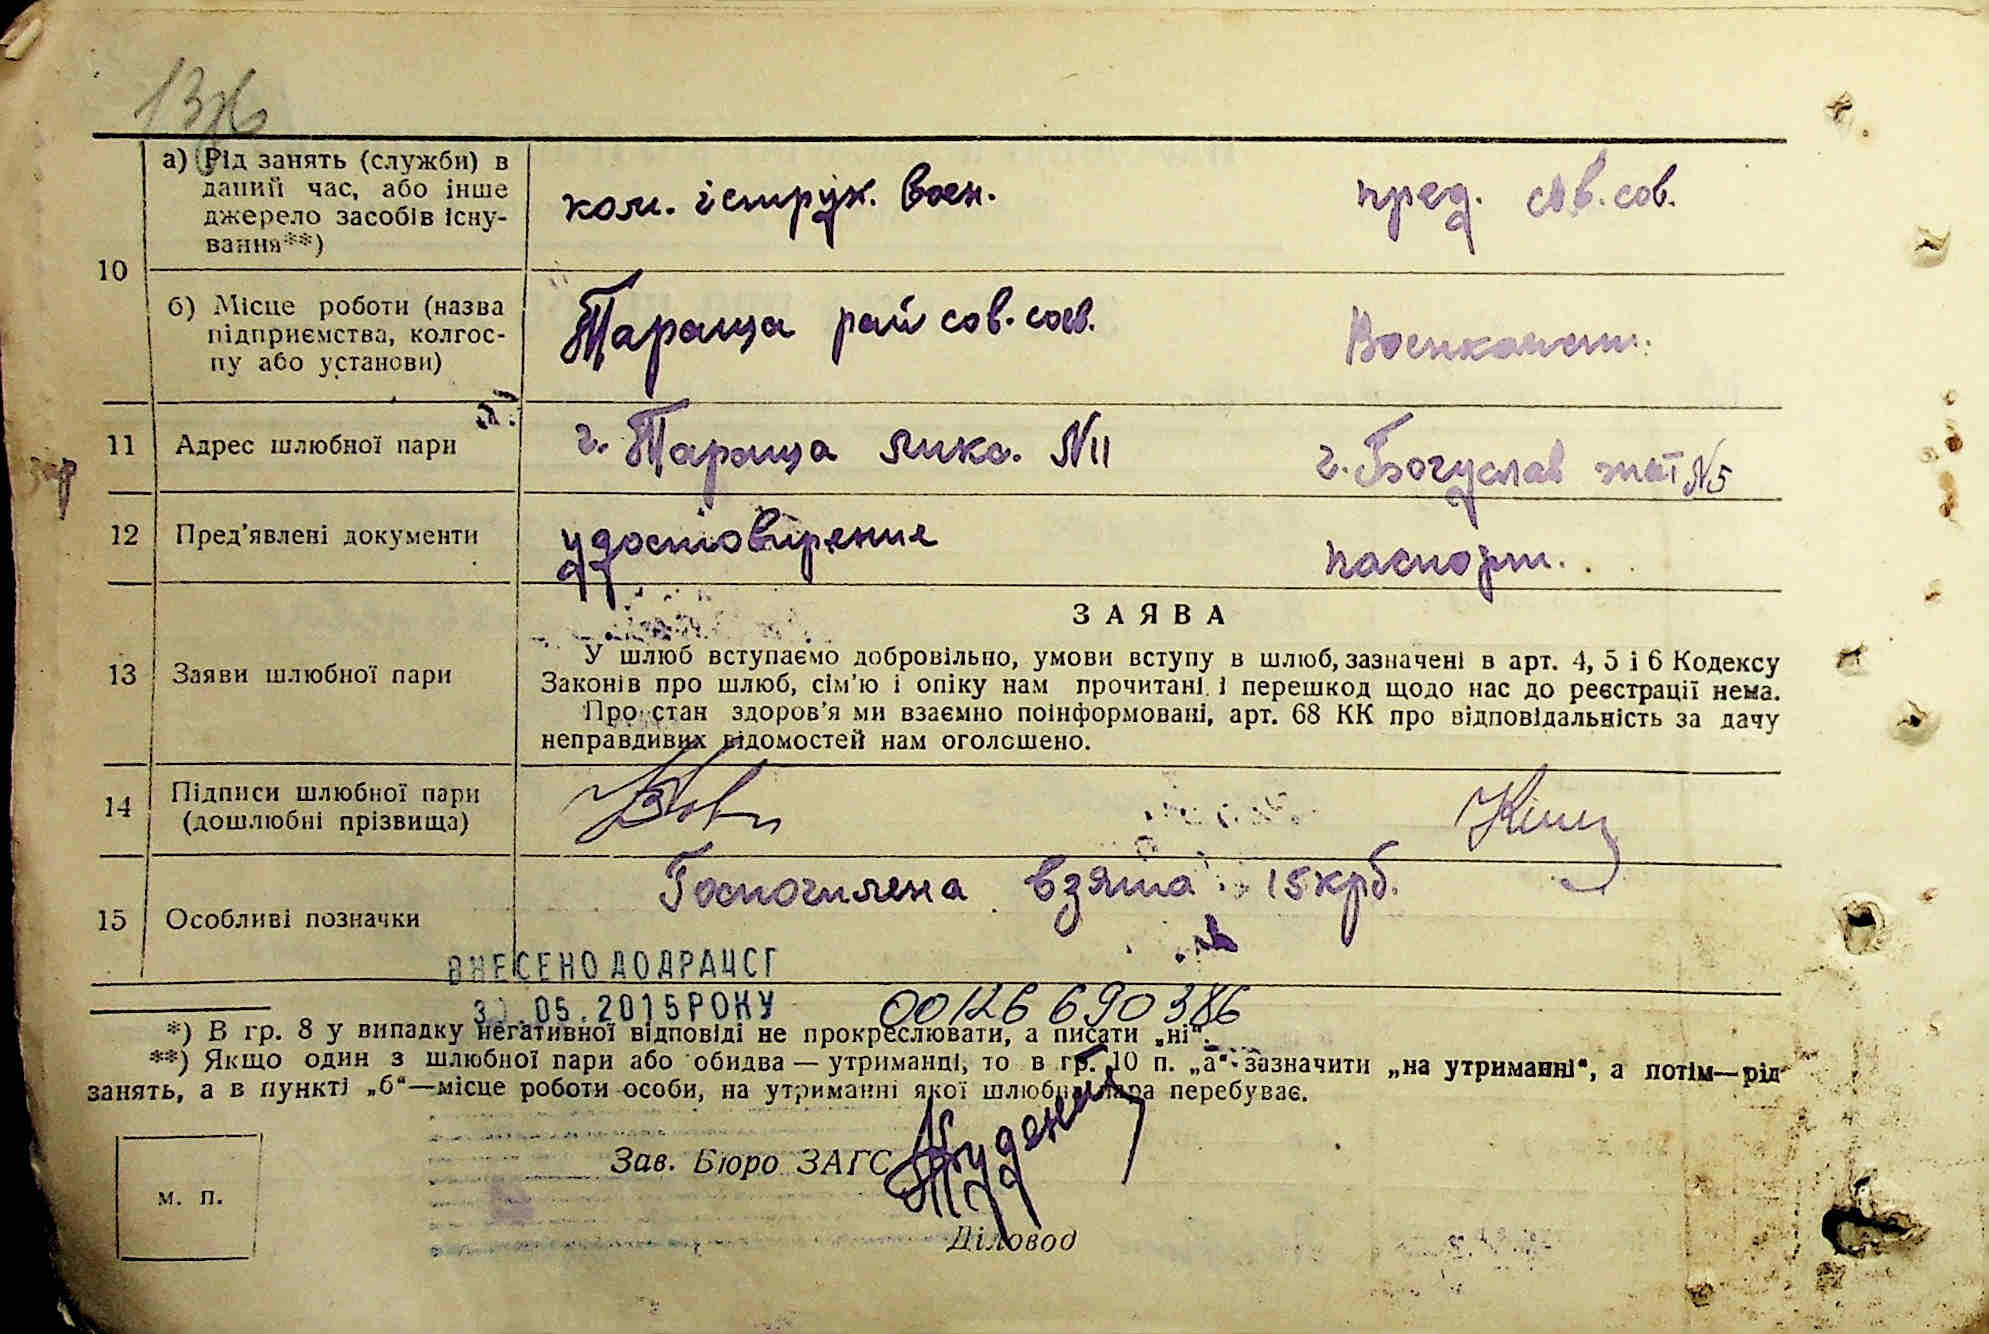 а) Рід занять (служби) в
даний час, або інше
джерело засобів існу-
вання**)
ком. іструк. воен.
пред. сов. сов.
10
б) Місце роботи (назва
підприємства, колгос-
пу або установи)
Тараща рай сов.
11
Адрес шлюбної пари
г. Тараща микс. N11
г. Богуслав N5
12
Пред'явлені документи
паспорт.
ЗАЯВА
13
Заяви шлюбної пари
У шлюб вступаємо добровільно, умови вступу в шлюб, зазначені в арт. 4, 5 і 6 Кодексу
Законів про шлюб, сім'ю і опіку нам прочитані і перешкод щодо нас до реєстрації нема.
Про стан здоров'я ми взаємно поінформовані, арт. 68 КК про відповідальність за дачу
неправдивих відомостей нам оголошено.
14
Підписи шлюбної пари
(дошлюбні прізвища)
15
Особливі позначки
взята 15 крб.
ВНЕСЕНО ДО ДРАЦСГ
.05.2015 РОКУ
00126 690 386
*) В гр. 8 у випадку негативної відповіді не прокреслювати, а писати „ні“.
**) Якщо один з шлюбної пари або обидва — утриманці, то в гр. 10 п. „а“ зазначити „на утриманні“, а потім—рід
занять, а в пункті „б“—місце роботи особи, на утриманні якої шлюбна пара перебуває.
м. п.
Зав. Бюро ЗАГС
Діловод